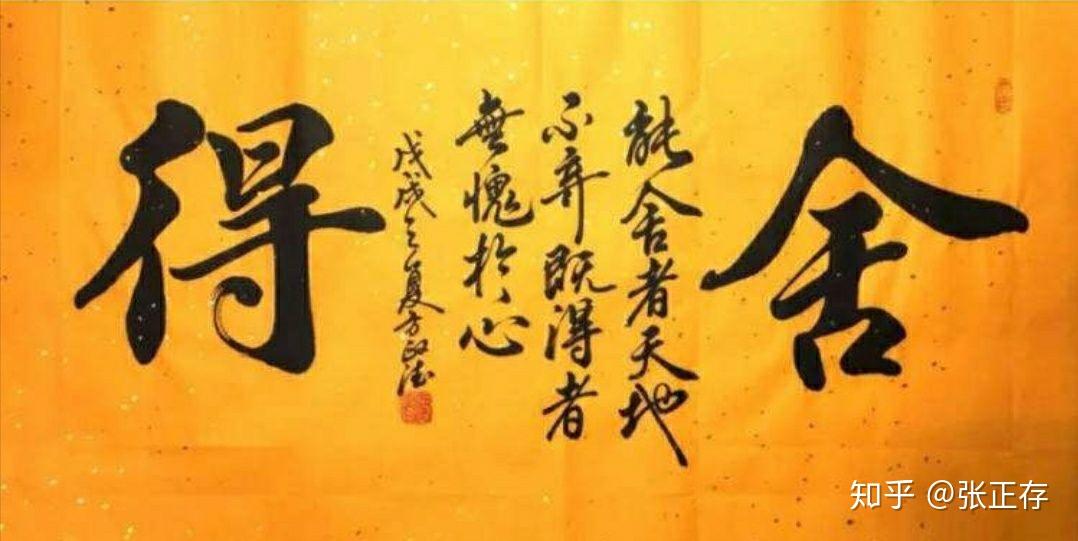 舍
能舍者天地
不弃既得者
無愧於心
戊戌之夏方政德
得
知乎 @张正存